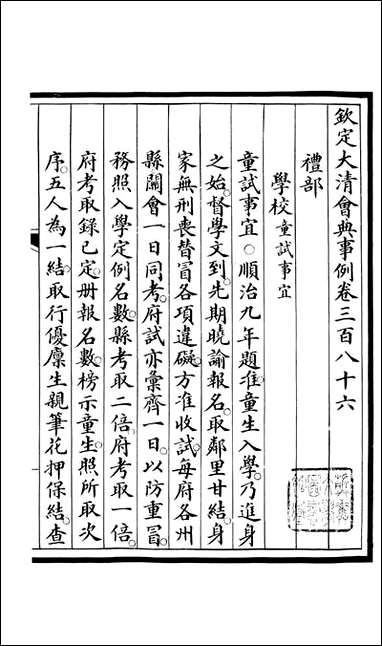 欽定大清會典事例卷三百八十六
禮部
學校童試事宜
童試事宜○順治九年題准童生入學乃進身
之始督學文到先期曉諭報名取鄰里甘結身
家無刑喪替冒各項違礙方准收試每府各州
縣關會一日同考府試亦彙齊一日以防重冒
務照入學定例名數縣考取二倍府考取一倍
府考取錄已定冊報名數榜示童生照所取次
序五人為一結取行優廩生親筆花押保結查